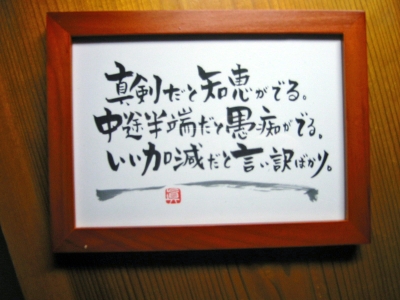 真剣だと知恵がでる。
中途半端だと愚痴がでる。
いい加減だと言い訳ばかり。